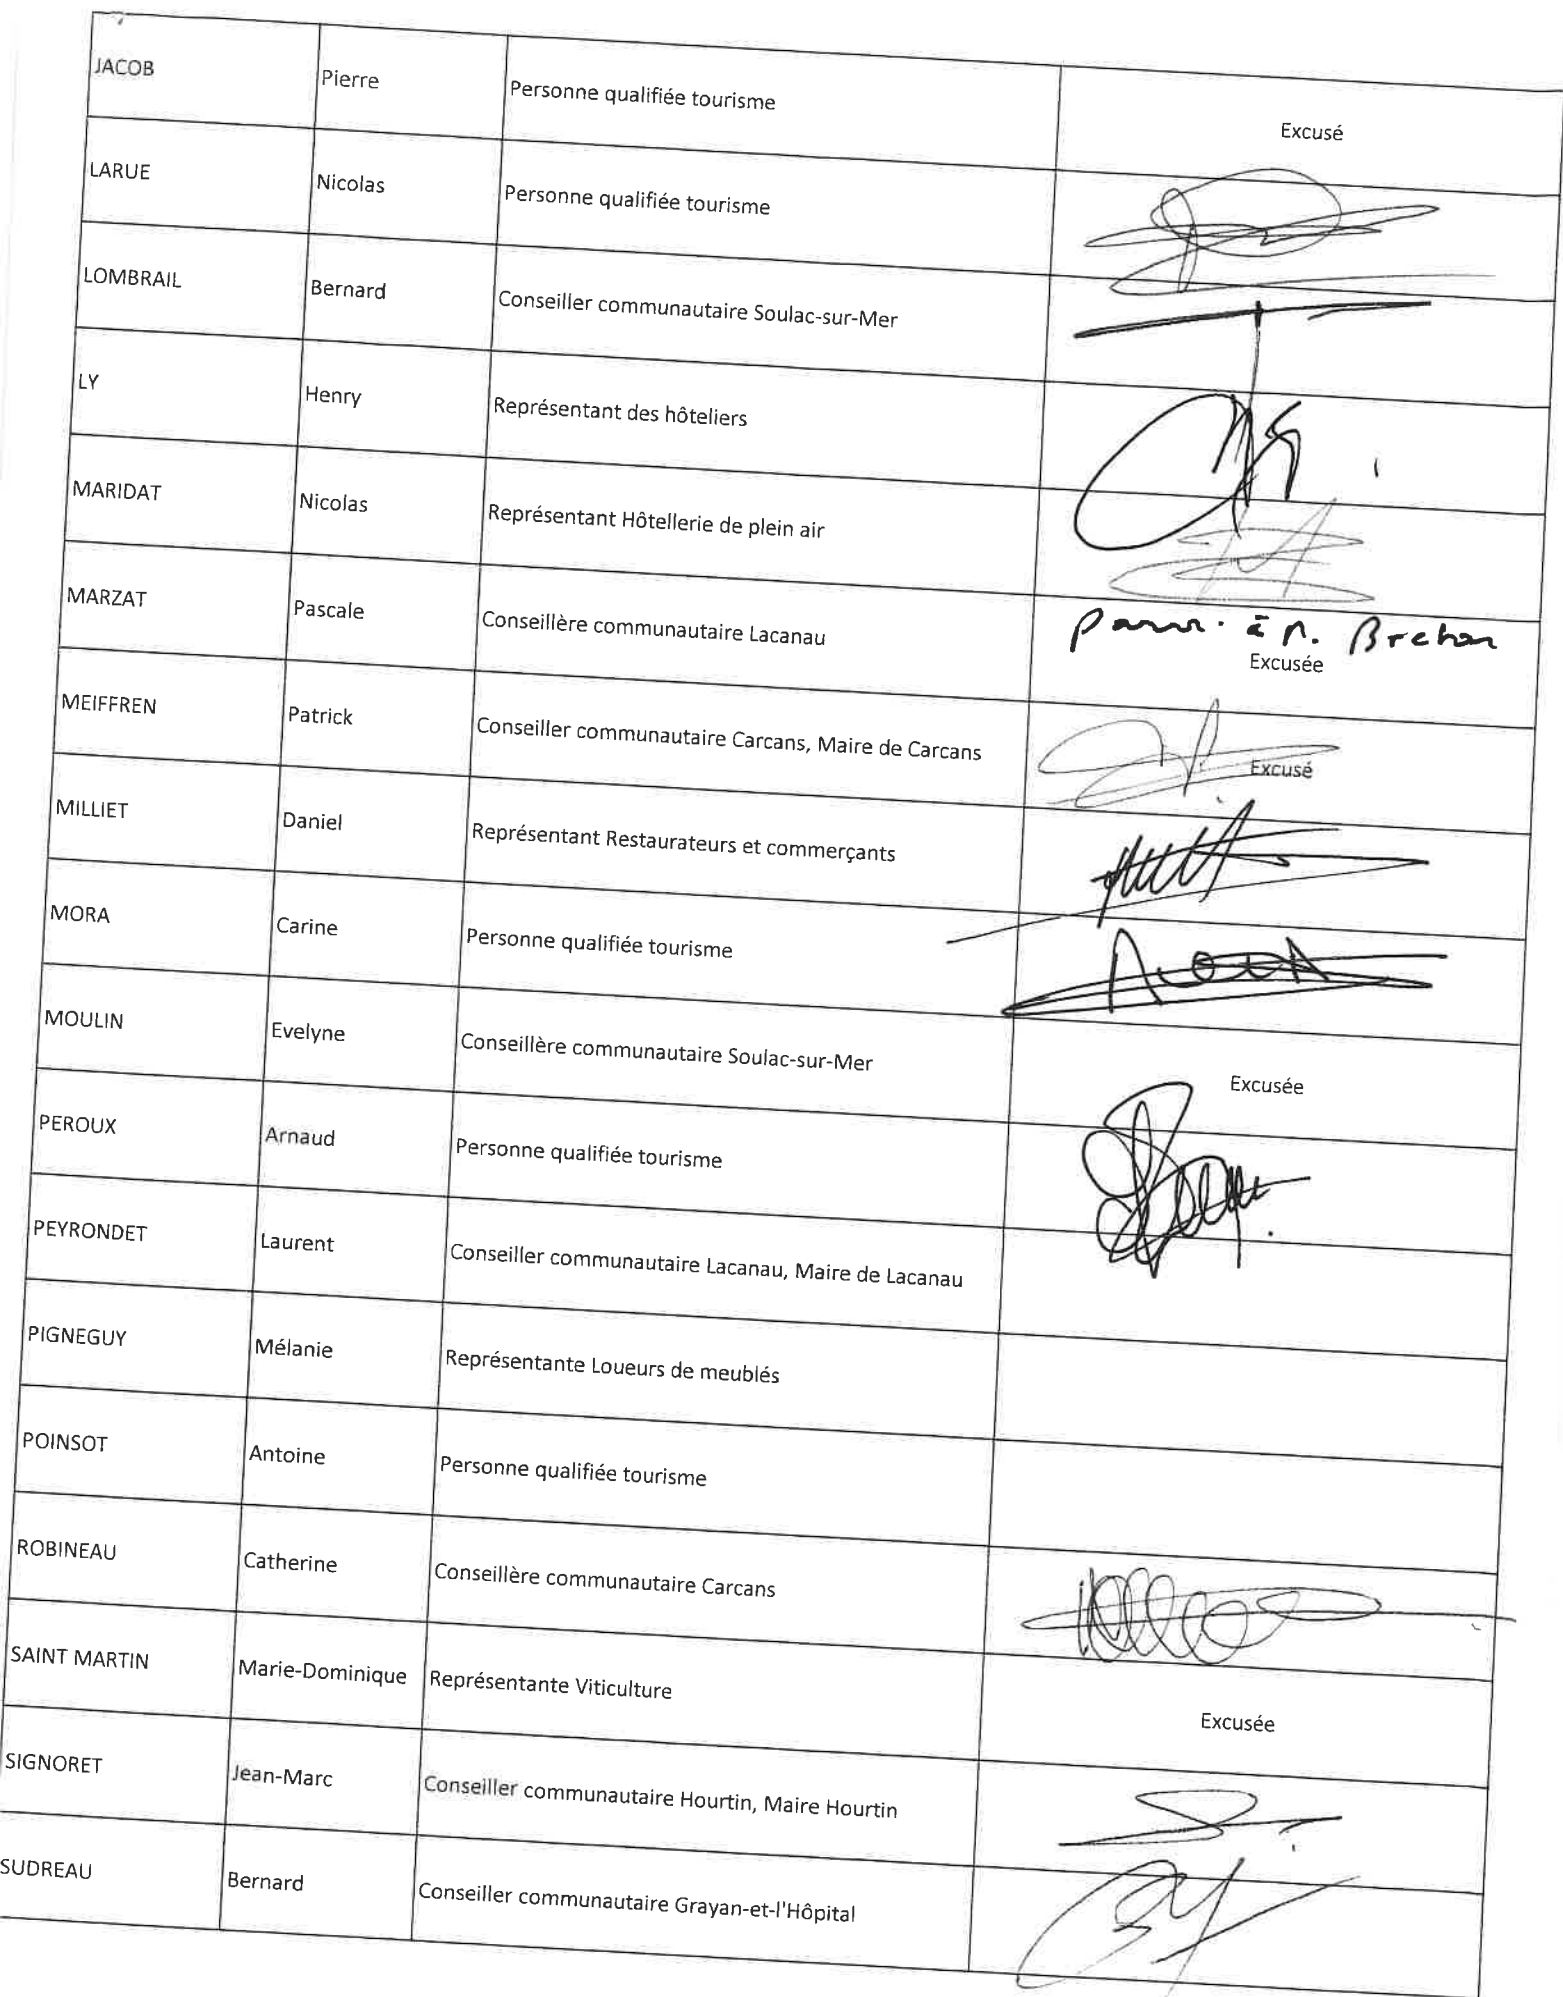 JACOB Pierre Personne qualifiée tourisme Excusé
LARUE Nicolas Personne qualifiée tourisme
LOMBRAIL Bernard Conseiller communautaire Soulac-sur-Mer
LY Henry Représentant des hôteliers
MARIDAT Nicolas Représentant Hôtellerie de plein air
MARZAT Pascale Conseillère communautaire Lacanau à M. Breton
Excusée
MEIFFREN Patrick Conseiller communautaire Carcans, Maire de Carcans Excusé
MILLIET Daniel Représentant Restaurateurs et commerçants
MORA Carine Personne qualifiée tourisme
MOULIN Evelyne Conseillère communautaire Soulac-sur-Mer Excusée
PEROUX Arnaud Personne qualifiée tourisme
PEYRONDET Laurent Conseiller communautaire Lacanau, Maire de Lacanau
PIGNEGUY Mélanie Représentante Loueurs de meublés
POINSOT Antoine Personne qualifiée tourisme
ROBINEAU Catherine Conseillère communautaire Carcans
SAINT MARTIN Marie-Dominique Représentante Viticulture Excusée
SIGNORET Jean-Marc Conseiller communautaire Hourtin, Maire Hourtin
SUDREAU Bernard Conseiller communautaire Grayan-et-l'Hôpital